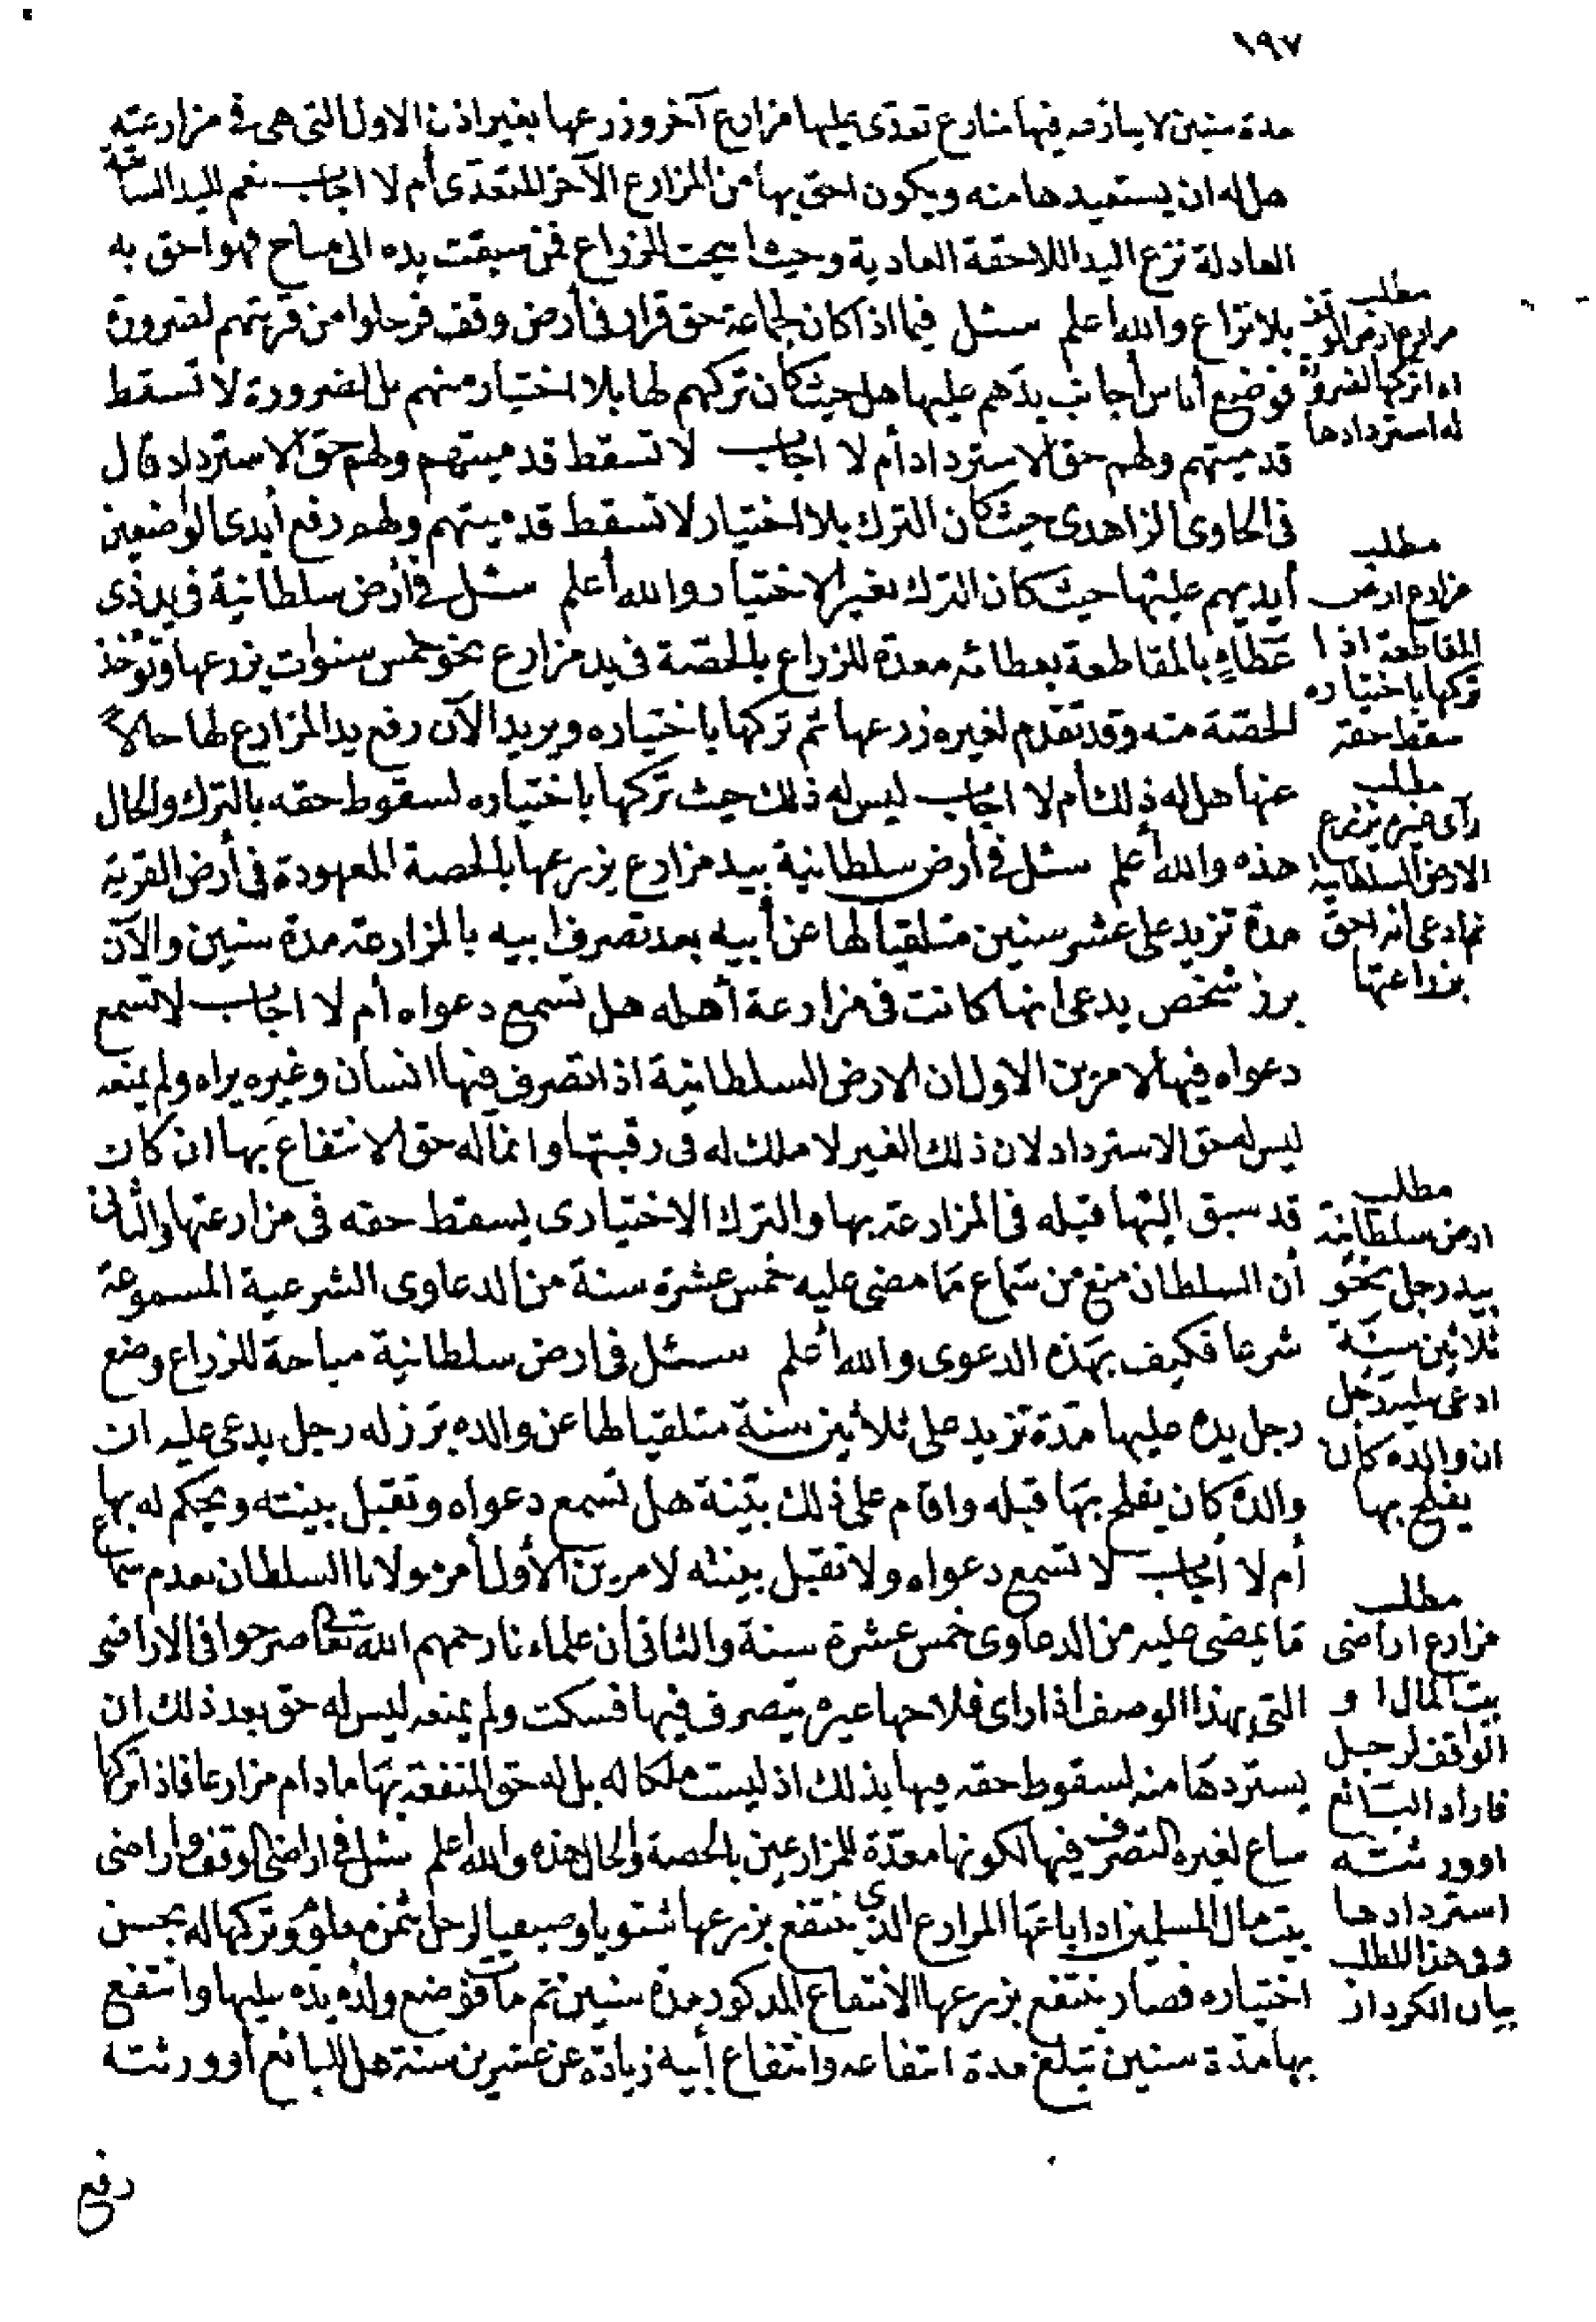 ١٩٧
مدة سنين لا ينازعه فيها منازع تعدى عليها مزارع آخر وزرعها بغير اذن الاول التى هى فى مزارعته
هل له ان يستعيدها منه ويكون احق بها من المزارع الآخر المتعدى أم لا اجاب نعم لليد السابقة
العادلة نزع اليد اللاحقة العادية وحيث ابيحت للزراع فمن سبقت يده الى مباح فهو احق به
بلا نزاع والله اعلم سئل فيما اذا كان لجماعة حق قرار فى أرض وقف فرحلوا من قريتهم لضرورة
فوضع أناس أجانب يدهم عليها هل حيث كان تركهم لها بلا اختيار منهم بل لضرورة لا تسقط
قدميتهم ولهم حق الاسترداد أم لا اجاب لا تسقط قدميتهم ولهم حق الاسترداد قال
فى الحاوى الزاهدى حيث كان الترك بلا اختيار لا تسقط قدميتهم ولهم رفع أيدى الواضعين
أيديهم عليها حيث كان الترك بغير الاختيار والله أعلم سئل فى أرض سلطانية فى يد ذى
عطاء بالمقاطعة بعطائه معدة للزراع بالحصة فى يد مزارع نحو خمس سنوات يزرعها وتؤخذ
الحصة منه وقد تقدم لغيره زرعها ثم تركها باختياره ويريد الآن رفع يد المزارع لها حالاً
عنها هل له ذلك أم لا اجاب ليس له ذلك حيث تركها باختياره لسقوط حقه بالترك والحال
هذه والله أعلم سئل فى أرض سلطانية بيد مزارع يزرعها بالحصة المعهودة فى أرض القرية
مدة تزيد على عشر سنين متلقيا لها عن أبيه بعد تصرف ابيه بالمزارعة مدة سنين والآن
برز شخص يدعى انها كانت فى مزارعة أهله هل تسمع دعواه أم لا اجاب لا تسمع
دعواه فيها لامرين الاول ان الارض السلطانية اذا تصرف فيها انسان وغيره يراه ولم يمنعه
ليس له حق الاسترداد لان ذلك الغير لا ملك له فى رقبتها وانما له حق الانتفاع بها ان كان
قد سبق اليها قبله فى المزارعة بها والترك الاختيارى يسقط حقه فى مزارعتها والثانى
أن السلطان منع من سماع ما مضى عليه خمس عشرة سنة من الدعاوى الشرعية المسموعة
شرعا فكيف بهذه الدعوى والله أعلم سئل فى ارض سلطانية مباحة للزراع وضع
رجل يده عليها مدة تزيد على ثلاثين سنة متلقيا لها عن والده برز له رجل يدعى عليه ان
والده كان يفلح بها قبله واقام على ذلك بينة هل تسمع دعواه وتقبل بينته ويحكم له بها
أم لا أجاب لا تسمع دعواه ولا تقبل بينته لامرين الأول أمر مولانا السلطان بعدم سماع
ما يمضى عليه من الدعاوى خمس عشرة سنة والثانى أن علماءنا رحمهم الله تعالى صرحوا فى الاراضى
التى بهذا الوصف اذا راى فلاحها غيره يتصرف فيها فسكت ولم يمنعه ليس له حق بعد ذلك ان
يستردها منه لسقوط حقه فيها بذلك اذ ليست ملكا له بل له حق المنفعة بها ما دام مزارعا فاذا تركها
ساغ لغيره التصرف فيها لكونها معدة للمزارعين بالحصة والحال هذه والله أعلم سئل فى اراضى الوقف واراضى
بيت مال المسلمين اذا باعها المزارع الذى ينتفع بزرعها شتويا وصيفيا لرجل بثمن معلوم وتركها له بحسن
اختياره فصار ينتفع بزرعها الانتفاع المذكور مدة سنين ثم مات فوضع ولده يده عليها وانتفع
بها مدة سنين تبلغ مدة انتفاعه وانتفاع أبيه زيادة عن عشرين سنة هل للبائع أو ورثته
رفع
مطلب
مزارع ارض الوقف
اذا تركها لضرورة
له استردادها
مطلب
مزارع ارض
المقاطعة اذا
تركها باختياره
سقط حقه
مطلب
رأى غيره يزرع
الارض السلطانية
ثم ادعى انه احق
بزراعتها
مطلب
ارض سلطانية
بيد رجل نحو
ثلاثين سنة
ادعى عليه رجل
ان والده كان
يفلح بها
مطلب
مزارع اراضى
بيت المال او
الواقف لرجل
فاراد البائع
او ورثته
استردادها
وفى هذا المطلب
بيان الكردار